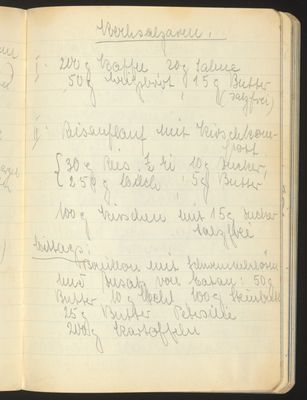 Kochsalzarm.
I. 200 g Kaffee 20 g Sahne
50 g Weißbrot 15 g Butter
(salzfrei)
II. Reisauflauf mit Kirschkom-
pott
{ 30 g Reis, ½ Ei 10 g Zucker,
{ 250 g Milch, 5 g Butter
100 g Kirschen mit 15 g Zucker
salzfrei
Mittags:
Bouillon mit
und Zusatz von : 50 g
Butter 10 g Mehl 100 g
25 g Butter Petersilie
200 g Kartoffeln